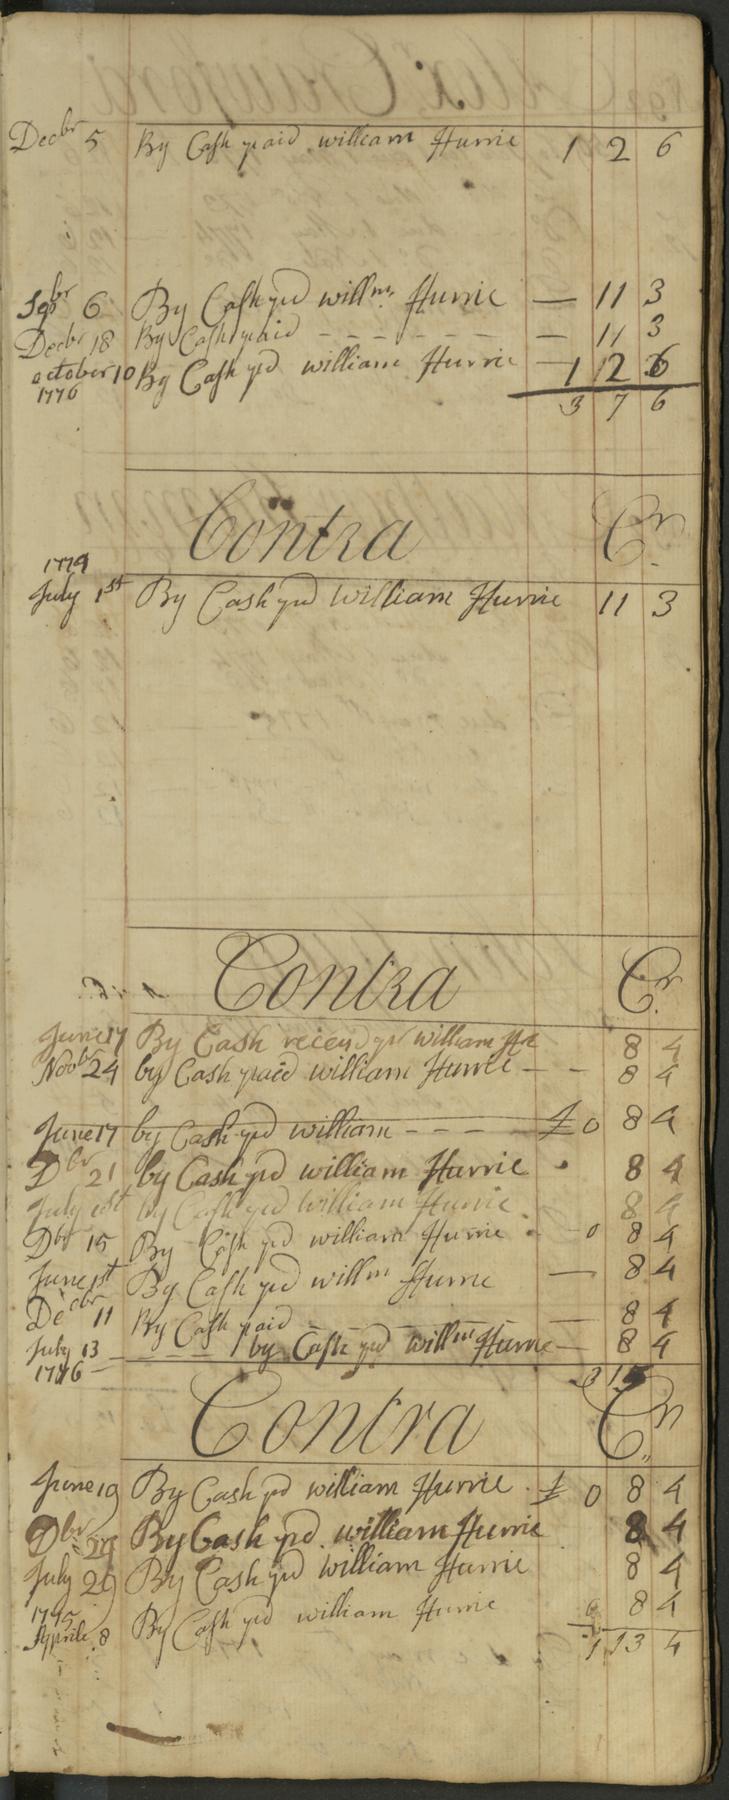 Decbr 5 By Cash paid william Hurrie 1 2 6
Sepbr 6 By Cash pd willm Hurrie — 11 3
Decbr 18 By Cash paid - - - - - - - — 11 3
october 10 By Cash pd william Hurrie — 1 2 6
1776
3 7 6
Contra Cr.
1774
July 1st By Cash pd William Hurrie 11 3
Contra Cr.
June 17 By Cash pr william 8 4
Novbr 24 by Cash paid william Hurrie - - 8 4
June 17 by Cash pd william - - - - £ 0 8 4
Dbr 21 by Cash pd william Hurrie 8 4
July 1st by Cash pd william Hurrie 8 4
Dbr 15 By Cash pd william Hurrie - 0 8 4
June 1st By Cash pd willm Hurrie — 8 4
Decbr 11 By Cash paid — 8 4
July 13 by Cash pd willm Hurrie — 8 4
1776
3 15
Contra Cr.
June 19 By Cash pd william Hurrie £ 0 8 4
Dbr By Cash pd william Hurrie 8 4
July 29 By Cash pd william Hurrie 8 4
1775
Aprile 8 By Cash pd william Hurrie 8 4
1 13 4